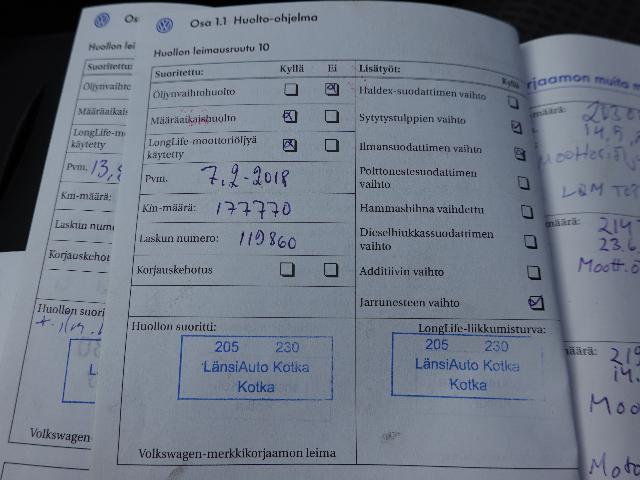 Osa 1.1 Huolto-ohjelma
Huollon leimausruutu 10
Suoritettu: Kyllä Ei
Öljynvaihtohuolto
Määräaikaishuolto
LongLife-moottoriöljyä
käytetty
Pvm. 7.2-2018
Km-määrä: 177770
Laskun numero: 119860
Korjauskehotus
Lisätyöt: Kyllä
Haldex-suodattimen vaihto
Sytytystulppien vaihto
Ilmansuodattimen vaihto
Polttonestesuodattimen
vaihto
Hammashihna vaihdettu
Dieselhiukkassuodattimen
vaihto
Additiivin vaihto
Jarrunesteen vaihto
Huollon suoritti:
205 230
LänsiAuto Kotka
Kotka
Volkswagen-merkkikorjaamon leima
LongLife-liikkumisturva:
205 230
LänsiAuto Kotka
Kotka
Os
Huollon lei
Suoritettu:
Öljynvaihto
Määräaikais
LongLife-m
käytetty
Pvm. 13,
Km-määrä:
Laskun num
Korjauskeho
Huollon suori
Volkswagen-
rjaamon muita m
määrä:
14.9
Moottoriöl
määrä: 214
23.6
Moott.ö
määrä: 219
14.
Moo
Moto